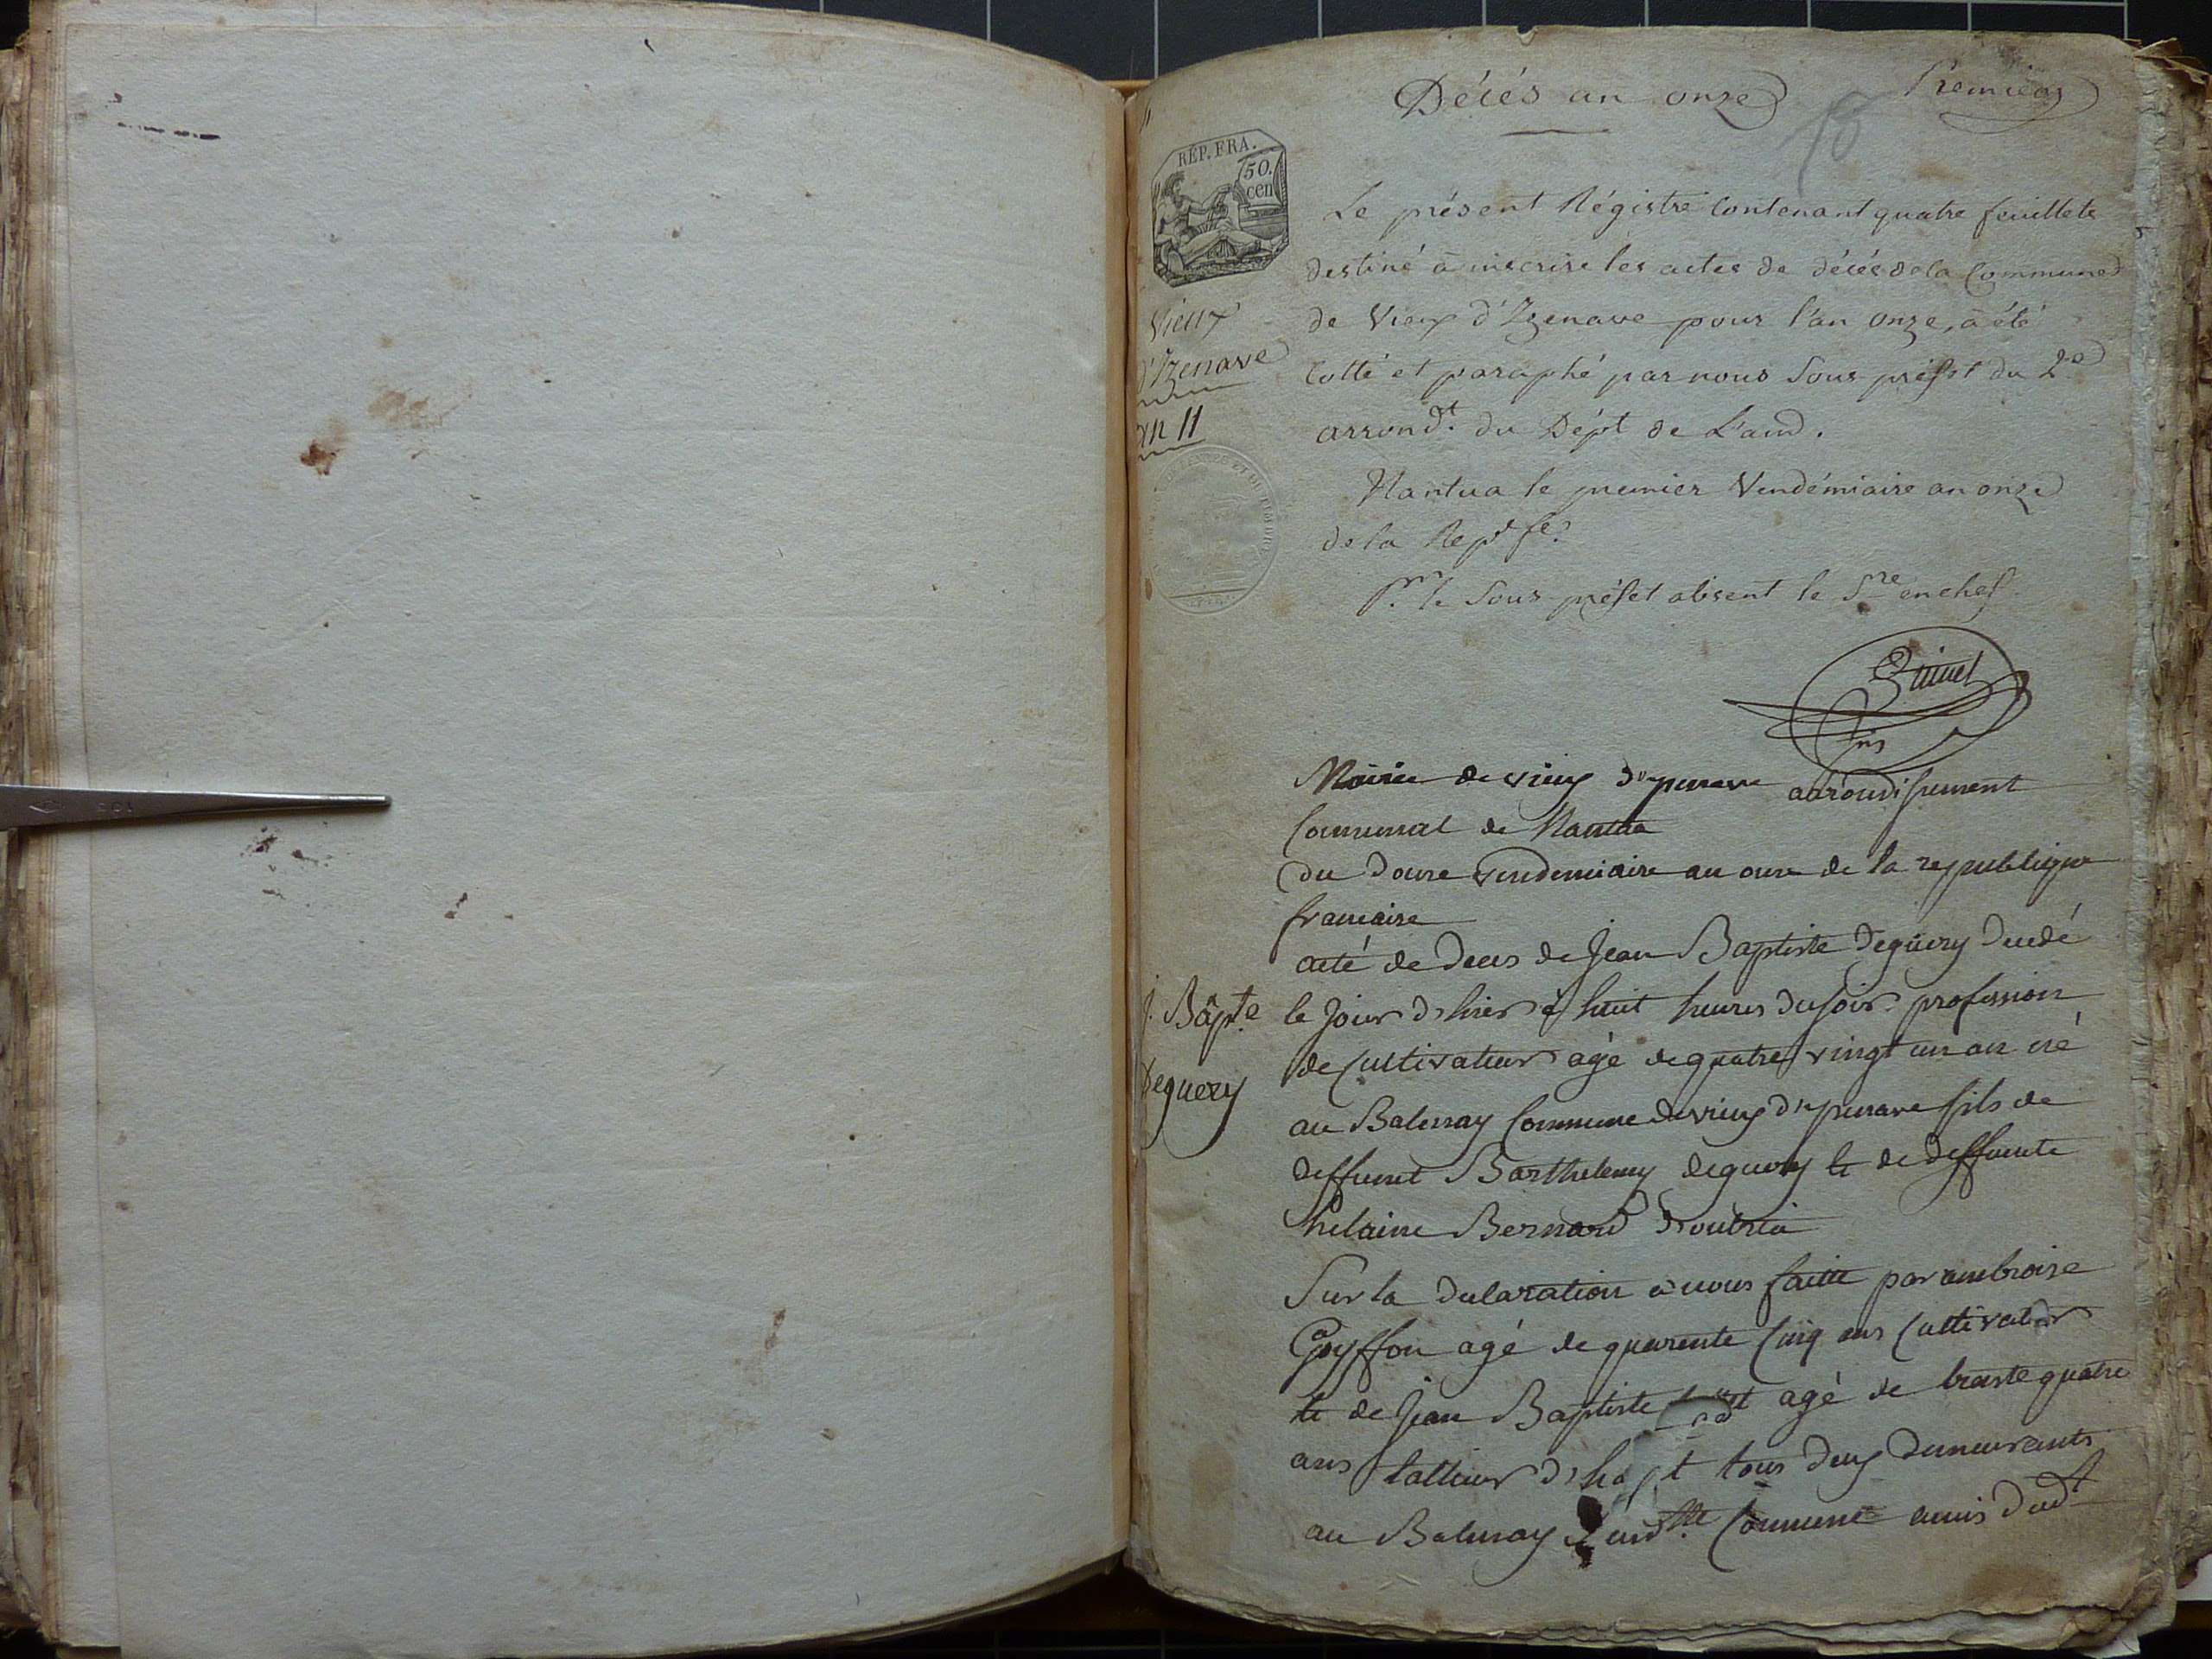 Décés an onze
Premier
RÉP. FRA.
50.
cen
Le présent Régistre Contenant quatre feuillets
destiné à inscrire les actes de décés de la Commune
de Vieux d'Izenave pour l'an onze, a été
Cotté et paraphé par nous Sous préfet du 2e
arrondt. du Dépt de L'ain.
Nantua le premier Vendémiaire an onze
de la Rep. fse.
Pr. le Sous-préfet absent le Sre en chef
Vieux
d'Izenave
an 11
Mairie de vieux d'ysenave arrondissement
Communal de Nantua
du douze vendemiaire an onze de la republique
francaise
acté de deces de Jean Baptiste Deguery decedé
le jour d'hier à huit heures du soir profession
de Cultivateur agé de quatre vingt un an né
au Balmay Commune de vieux d'ysenave fils de
deffunt Barthelemy deguery et de deffunte
helaine Bernard
J. Bapte
Deguery
Sur la declaration à nous faitte par ambroise
Goyffon agé de quarente cinq ans Cultivateur
et de Jean Baptiste agé de trante quatre
ans tallieur d'ha t tous deux demeurants
au Balmay Commune amis dudt